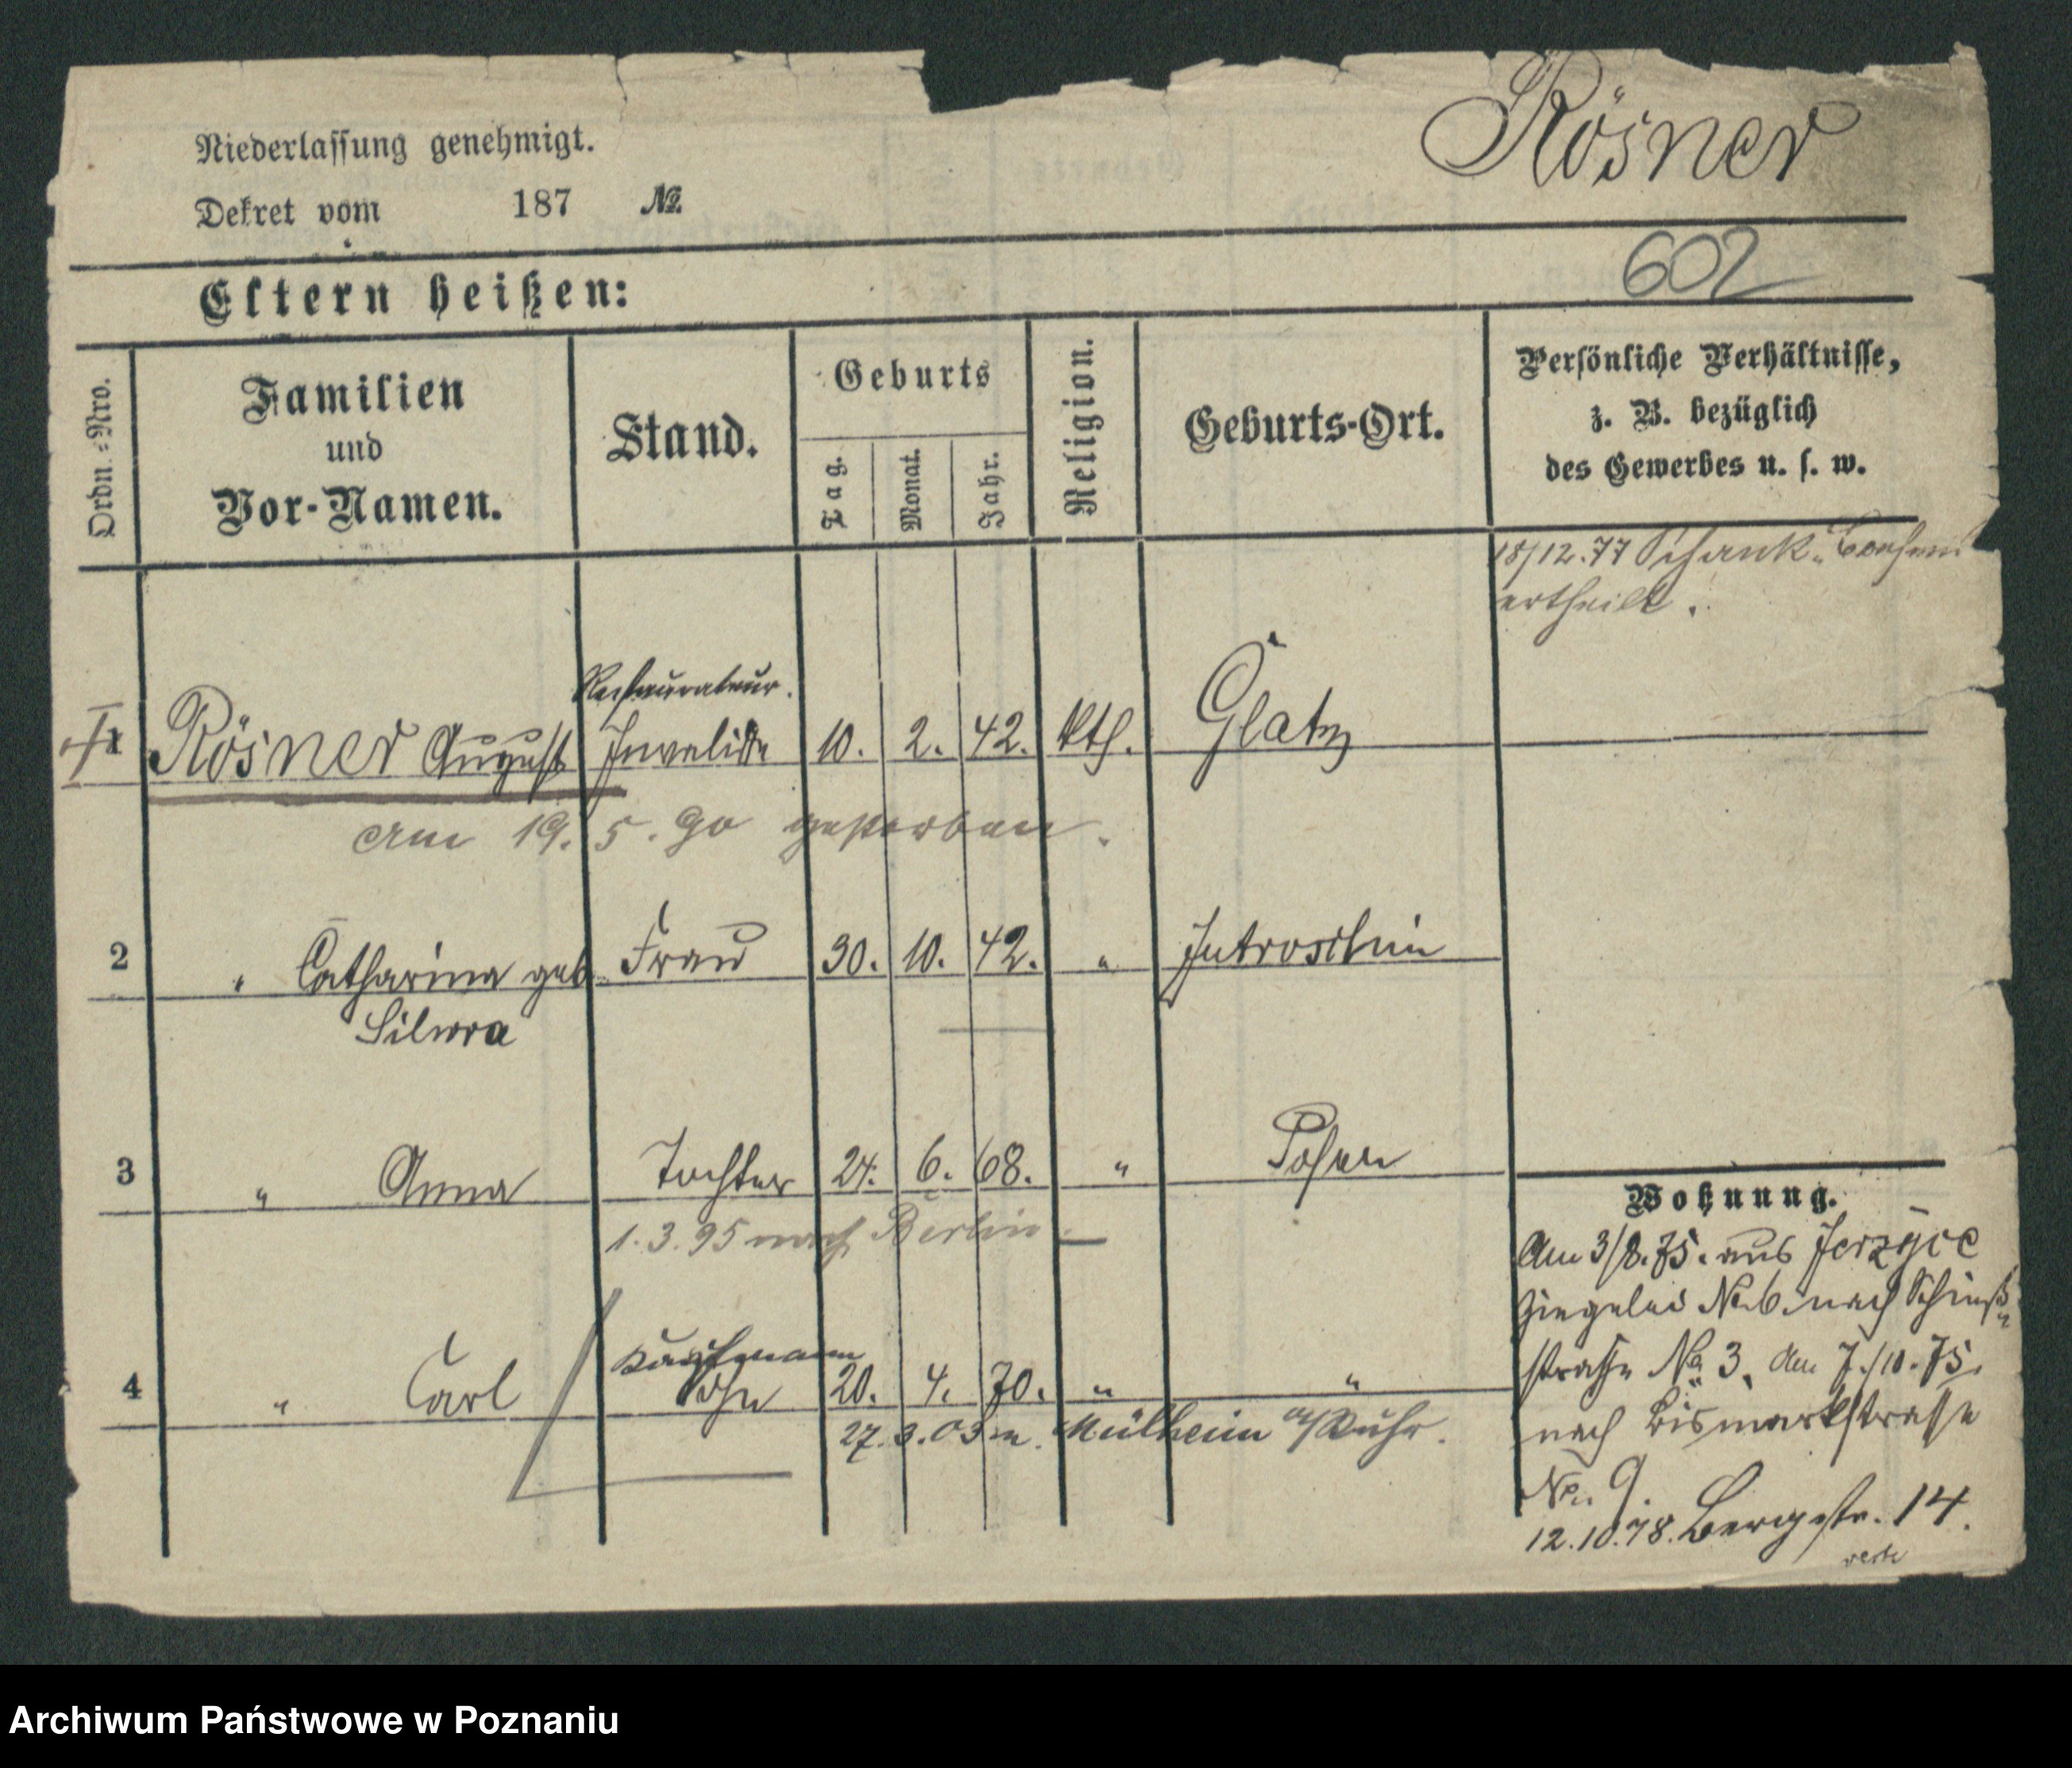 Rösner
Niederlassung genehmigt.
Dekret vom 187 №
602
Eltern heißen:
Ordn.-Nro.
Familien
und
Vor-Namen.
Stand.
Geburts
Tag.
Monat.
Jahr.
Religion.
Geburts-Ort.
Persönliche Verhältnisse,
z. B. bezüglich
des Gewerbes u. s. w.
18/12.77 Schank-Consens
ertheilt.
Restaurateur.
1 Rösner August Invalide 10. 2. 42. kth. Glatz
am 19. 5. 90 gestorben.
2 " Catharina geb. Frau 30. 10. 42. " Jutroschin
Silwra
3 " Anna Tochter 24. 6. 68. " Posen
1. 3. 95 nach Berlin.
Kaufmann
4 " Carl Sohn 20. 4. 70. " "
27. 3. 03 n. Mülheim a/Ruhr.
Wohnung.
Am 3/8.75. aus Jerzyce
Ziegelei No 6 nach Schieß-
straße No 3, am 7./10.75.
nach Bismarkstrasse
No 9.
12.10.78. Bergstr. 14.
Archiwum Państwowe w Poznaniu